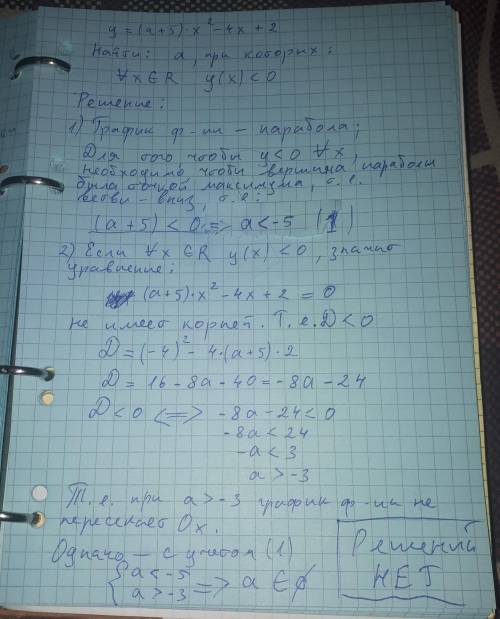 y = (a+5)·x² - 4x + 2
Найти: a, при которых:
∀x∈R y(x) < 0
Решение:
1) График ф-ии - парабола;
Для того чтобы y<0 ∀x,
необходимо, чтобы вершина параболы
была точкой максимума, т.е.
ветви - вниз, т.е.:
(a+5) < 0 => a < -5 (1)
2) Если ∀x ∈ R y(x) < 0, значит
уравнение:
(a+5)·x² - 4x + 2 = 0
не имеет корней. Т.е. D < 0
D = (-4)² - 4·(a+5)·2
D = 16 - 8a - 40 = -8a - 24
D < 0 <=> -8a - 24 < 0
-8a < 24
-a < 3
a > -3
Т.е. при a > -3 график ф-ии не
пересекает Ox.
Однако - с учётом (1)
{ a < -5
a > -3 => a ∈ ∅
Решений
НЕТ